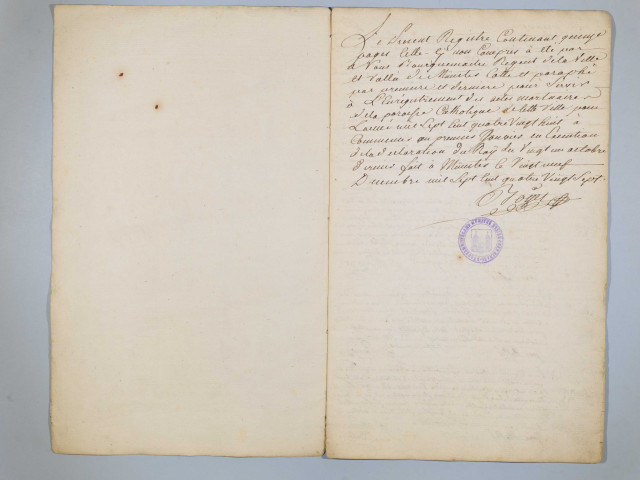 Le Present Registre Contenant quinze
pages Celle Cy non Compris à été par
Nous Bourguemaitre Regent de la Ville
et Vallée de Munster Cotté et paraphé
par premiere et derniere pour Servir
à L'Enregistrement des actes mortuaires
de la paroisse Catholique de cette Ville pour
L'année mil Sept Cent quatre Vingt huit à
Commencer au premier Janvier en Execution
de la declaration du Roy du Vingt un octobre
dernier fait à Munster le Vingt neuf
Decembre mil Sept Cent quatre Vingt Sept